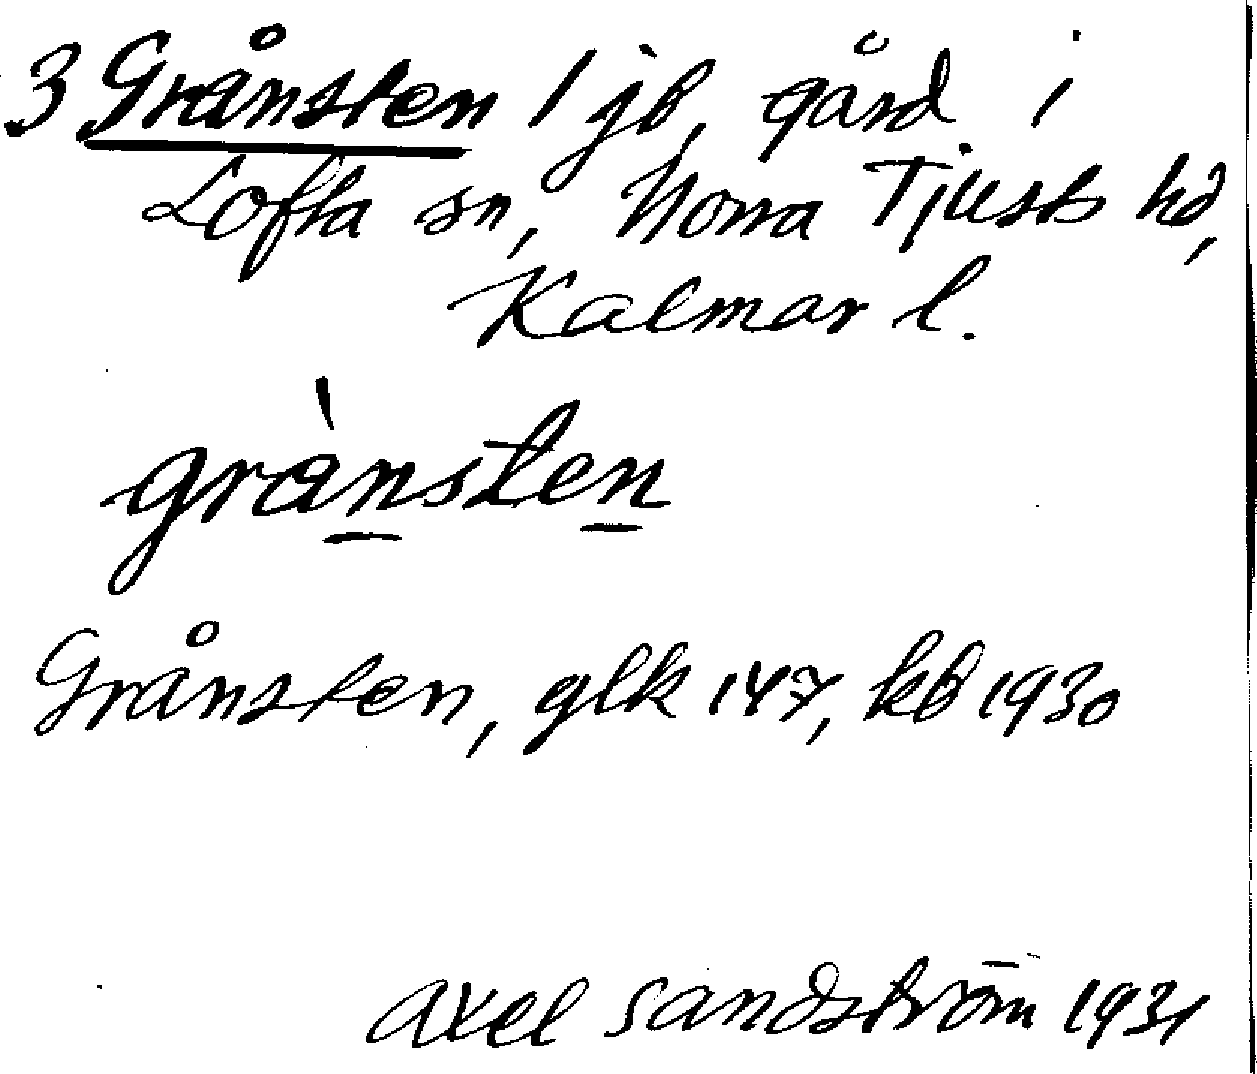 3 Grånsten 1 jb, gård i
Lofta sn, Norra Tjusts hd,
Kalmar l.
grànsten
Grånsten, glk 147, kb 1930
Axel Sandström 1931